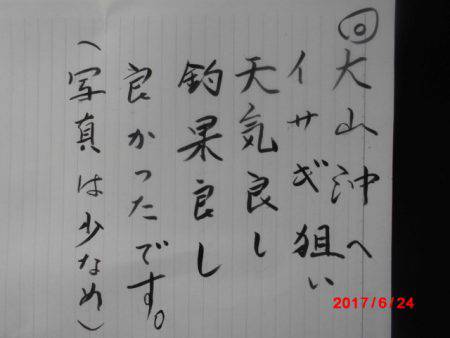 ◎大山沖へ
イサギ狙い
天気良し
釣果良し
良かったです。
(写真は少なめ)
2017/6/24